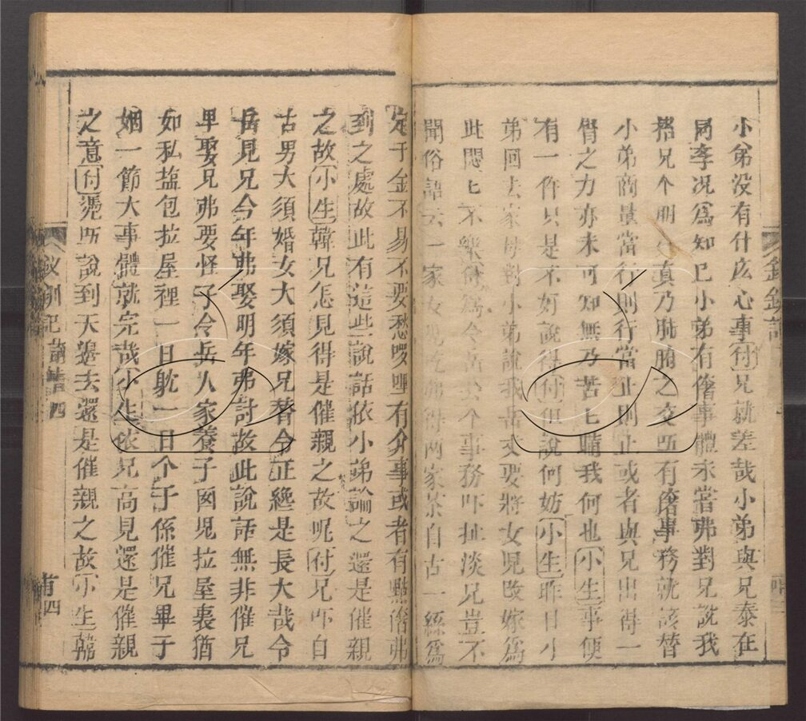 小弟没有什庅心事付兄就差哉小弟與兄泰在
同李况爲知已小弟有㑃事體未當弗對兄說我
搭兄个朋真乃肺腑之交所有㑃事務就該替
小弟商量當行則行當止則止或者與兄出得一
臂之力亦未可知無乃苦七瞞我何也小生事便
有一件只是不好說得付但說何妨小生昨日小
弟回去家母對小弟說我岳丈要將女兒改嫁爲
此悶七不樂付爲令岳个事務吓扯淡兄豈不
聞俗語云一家女兒吃弗得兩家茶自古一絲爲
定千金不易不要愁嗄哩有介事或者有點㑃弗
到之處故此有這些說話依小弟論之還是催親
之故小生韓兄怎見得是催親之故呢付兄吓自
古男大須婚女大須嫁兄替令正纔是長大哉令
岳見兄今年弗娶明年弗討故此說話無非催兄
早娶兄弗要怪子令岳人家養子囡兒拉屋裏猶
如私塩包拉屋裡一日躭一日个干係催兄畢于
姻一節大事體就完哉小生依兄高見還是催親
之意付憑所說到天邊去還是催親之故小生韓
釵釧記
四